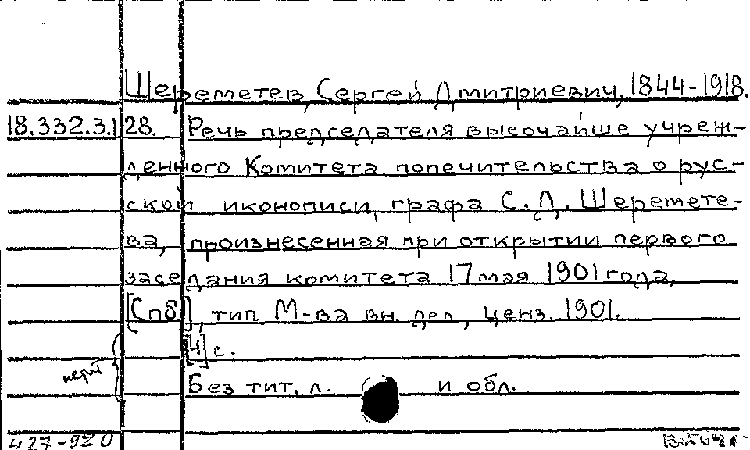 Шереметев, Сергей Дмитриевич, 1844-1918.
18.332.3.128. Речь председателя высочайше учреж-
денного Комитета попечительства о рус-
ской иконописи, графа С. Д. Шеремете-
ва, произнесенная при открытии первого
заседания комитета 17 мая 1901 года,
[Спб], тип. М-ва вн. дел, ценз. 1901.
[4] с.
Без тит. л. и обл.
427-920